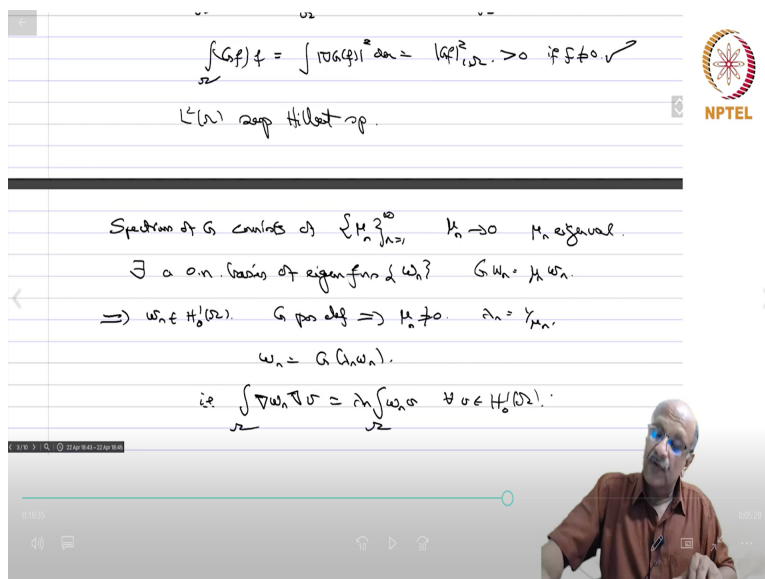 ∫_Ω (Gf) f = ∫ |∇G(f)|² dx = |Gf|²_{1,Ω} > 0 if f ≠ 0 ✓
NPTEL
L²(Ω) sep Hilbert sp.
Spectrum of G consists of {μ_n}_{n=1}^∞ μ_n → 0 μ_n eigenval.
∃ a o.n. basis of eigen fns {w_n} G w_n = μ_n w_n.
⇒ w_n ∈ H₀¹(Ω). G pos def ⇒ μ_n ≠ 0. λ_n = 1/μ_n.
w_n = G(λ_n w_n).
ie ∫_Ω ∇w_n ∇v = λ_n ∫_Ω w_n v ∀ v ∈ H₀¹(Ω).
3/10 22 Apr 18:43 – 22 Apr 18:46
0:16:35
0:05:29
10
30